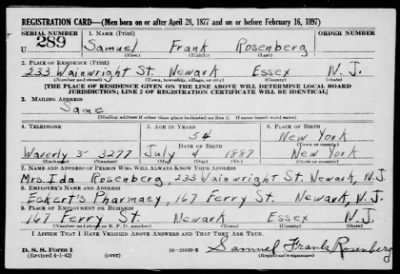 REGISTRATION CARD—(Men born on or after April 28, 1877 and on or before February 16, 1897)
SERIAL NUMBER 1. NAME (Print) ORDER NUMBER
U 289 Samuel Frank Rosenberg
(First) (Middle) (Last)
2. PLACE OF RESIDENCE (Print)
233 Wainwright St. Newark Essex N. J.
(Number and street) (Town, township, village, or city) (County) (State)
[THE PLACE OF RESIDENCE GIVEN ON THE LINE ABOVE WILL DETERMINE LOCAL BOARD
JURISDICTION; LINE 2 OF REGISTRATION CERTIFICATE WILL BE IDENTICAL]
3. MAILING ADDRESS
Same
[Mailing address if other than place indicated on line 2. If same insert word same]
4. TELEPHONE 5. AGE IN YEARS 6. PLACE OF BIRTH
54 New York
DATE OF BIRTH (Town or county)
Waverly 3-3277 July 4 1887 New York
(Exchange) (Number) (Mo.) (Day) (Yr.) (State or country)
7. NAME AND ADDRESS OF PERSON WHO WILL ALWAYS KNOW YOUR ADDRESS
Mrs. Ida Rosenberg, 233 Wainwright St. Newark, N.J.
8. EMPLOYER'S NAME AND ADDRESS
Eckert's Pharmacy, 167 Ferry St. Newark, N.J.
9. PLACE OF EMPLOYMENT OR BUSINESS
167 Ferry St. Newark Essex N. J.
(Number and street or R. F. D. number) (Town) (County) (State)
I AFFIRM THAT I HAVE VERIFIED ABOVE ANSWERS AND THAT THEY ARE TRUE.
D. S. S. Form 1
(Revised 4-1-42) (over) Samuel Frank Rosenberg
(Registrant's signature)